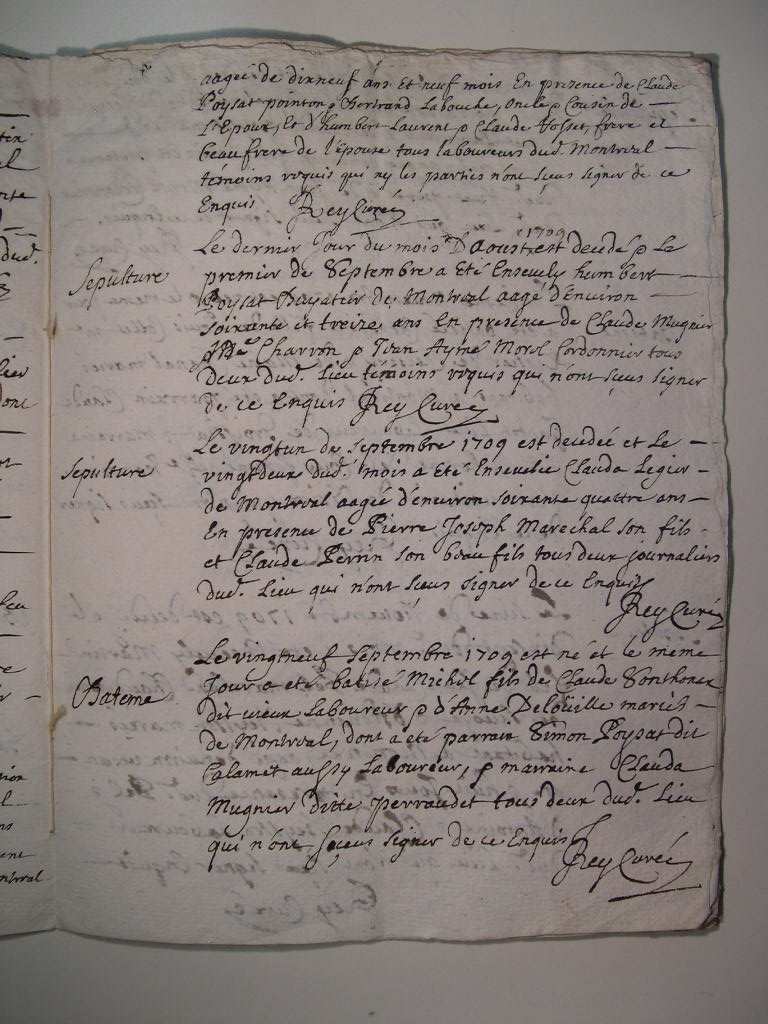 aagée de dixneuf ans Et neuf mois En presence de Claude
Poysat pointon & Bertrand Labouche, oncle & Cousin de
L'Epoux, Et d'humbert Laurent & Claude Vosset, frere et
beaufrere de l'épouse tous laboureurs dud. Montreal
témoins requis qui ny les parties n'ont sceus signer de ce
Enquis Rey Curé
Le dernier Jour du mois D'aoust 1709 est decedé & Le
Sepulture
premier de Septembre a Eté Ensevely humbert
Poysat de Montreal aagé d'Environ
soixante et treize ans En presence de Claude Mugnier
Charron & Jean Aymé Morel Cordonnier tous
deux dud. Lieu témoins requis qui n'ont sceus signer
de ce Enquis Rey Curé
Le vingtun de Septembre 1709 est decedée et Le
Sepulture
vingtdeux dud. mois a Eté Ensevelie Clauda Legier
de Montreal aagée d'environ soixante quattre ans
En presence de Pierre Joseph Marechal son fils
et Claude Perrin son beau fils tous deux journaliers
dud. Lieu qui n'ont sceus signer de ce Enquis
Rey Curé
Le vingtneuf Septembre 1709 est né et le meme
Bateme
Jour a eté batisé Michel fils de Claude Sonthonax
dit vieux Laboureur & d'Anne Delouille mariés
de Montreal, dont a eté parrain Simon Poysat dit
Calamet aussy Laboureur, & marraine Clauda
Mugnier ditte perraudet tous deux dud. Lieu
qui n'ont sçeus signer de ce Enquis
Rey Curé